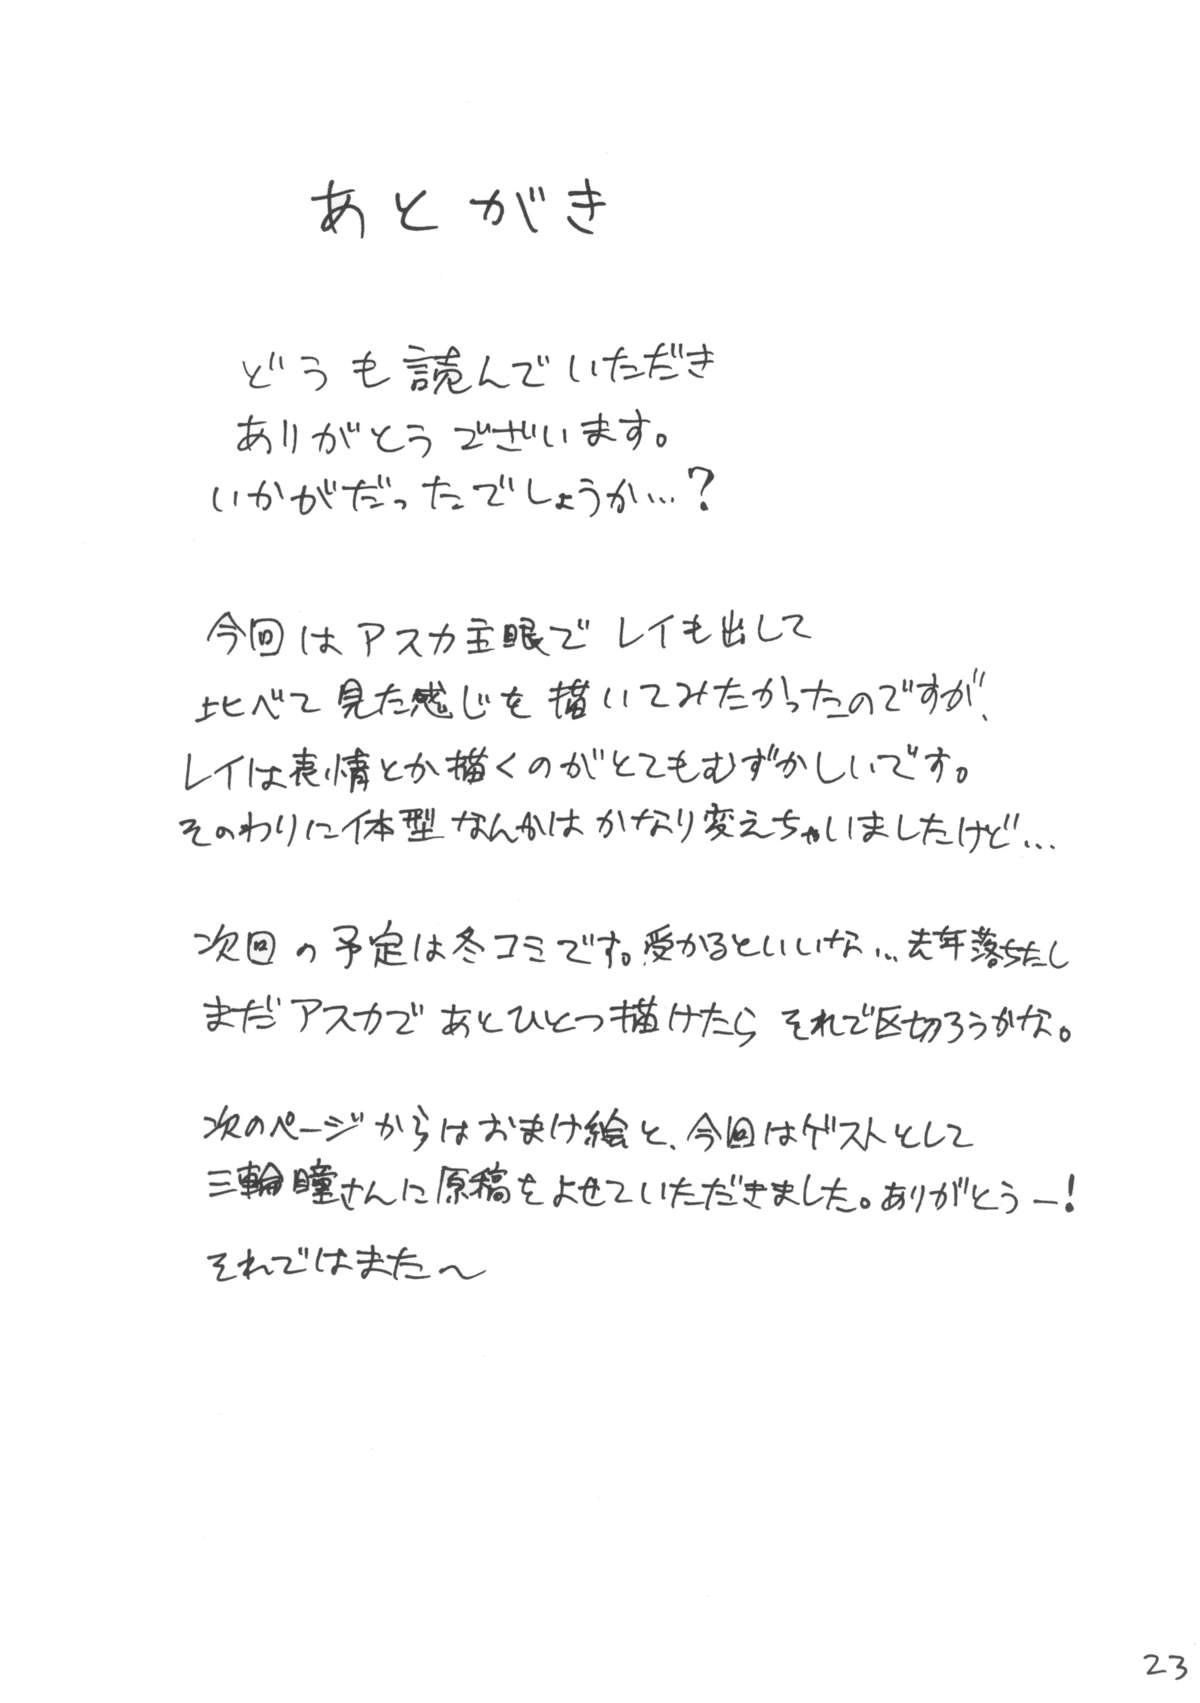 あとがき
どうも読んでいただき
ありがとうございます。
いかがだったでしょうか…?
今回はアスカ主眼でレイも出して
比べて見た感じを描いてみたかったのですが、
レイは表情とか描くのがとてもむずかしいです。
そのわりに体型なんかはかなり変えちゃいましたけど…
次回の予定は冬コミです。受かるといいな…去年落ちたし
まだアスカであとひとつ描けたらそれで区切ろうかな。
次のページからはおまけ絵と、今回はゲストとして
三輪瞳さんに原稿をよせていただきました。ありがとうー!
それではまた〜
23